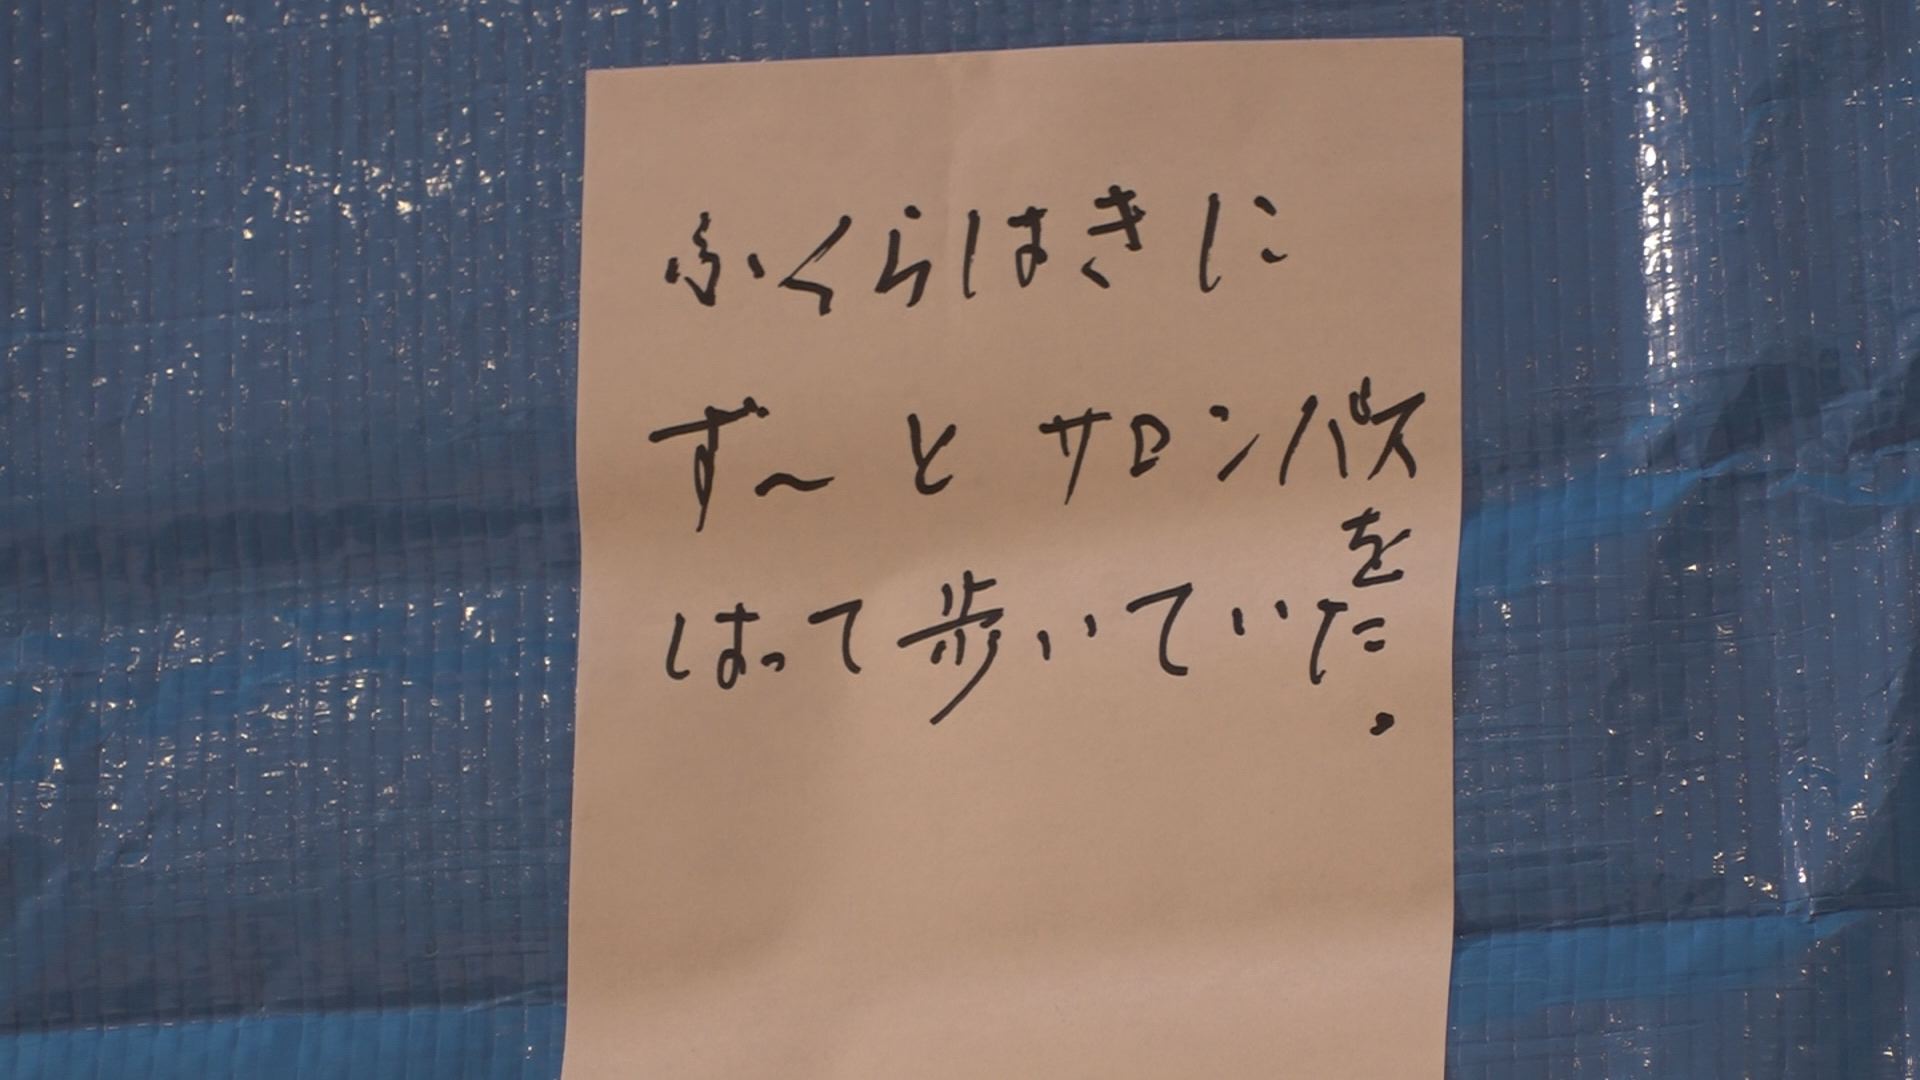 ふくらはきに
ず～と サロンバス
を
はって歩いていた。